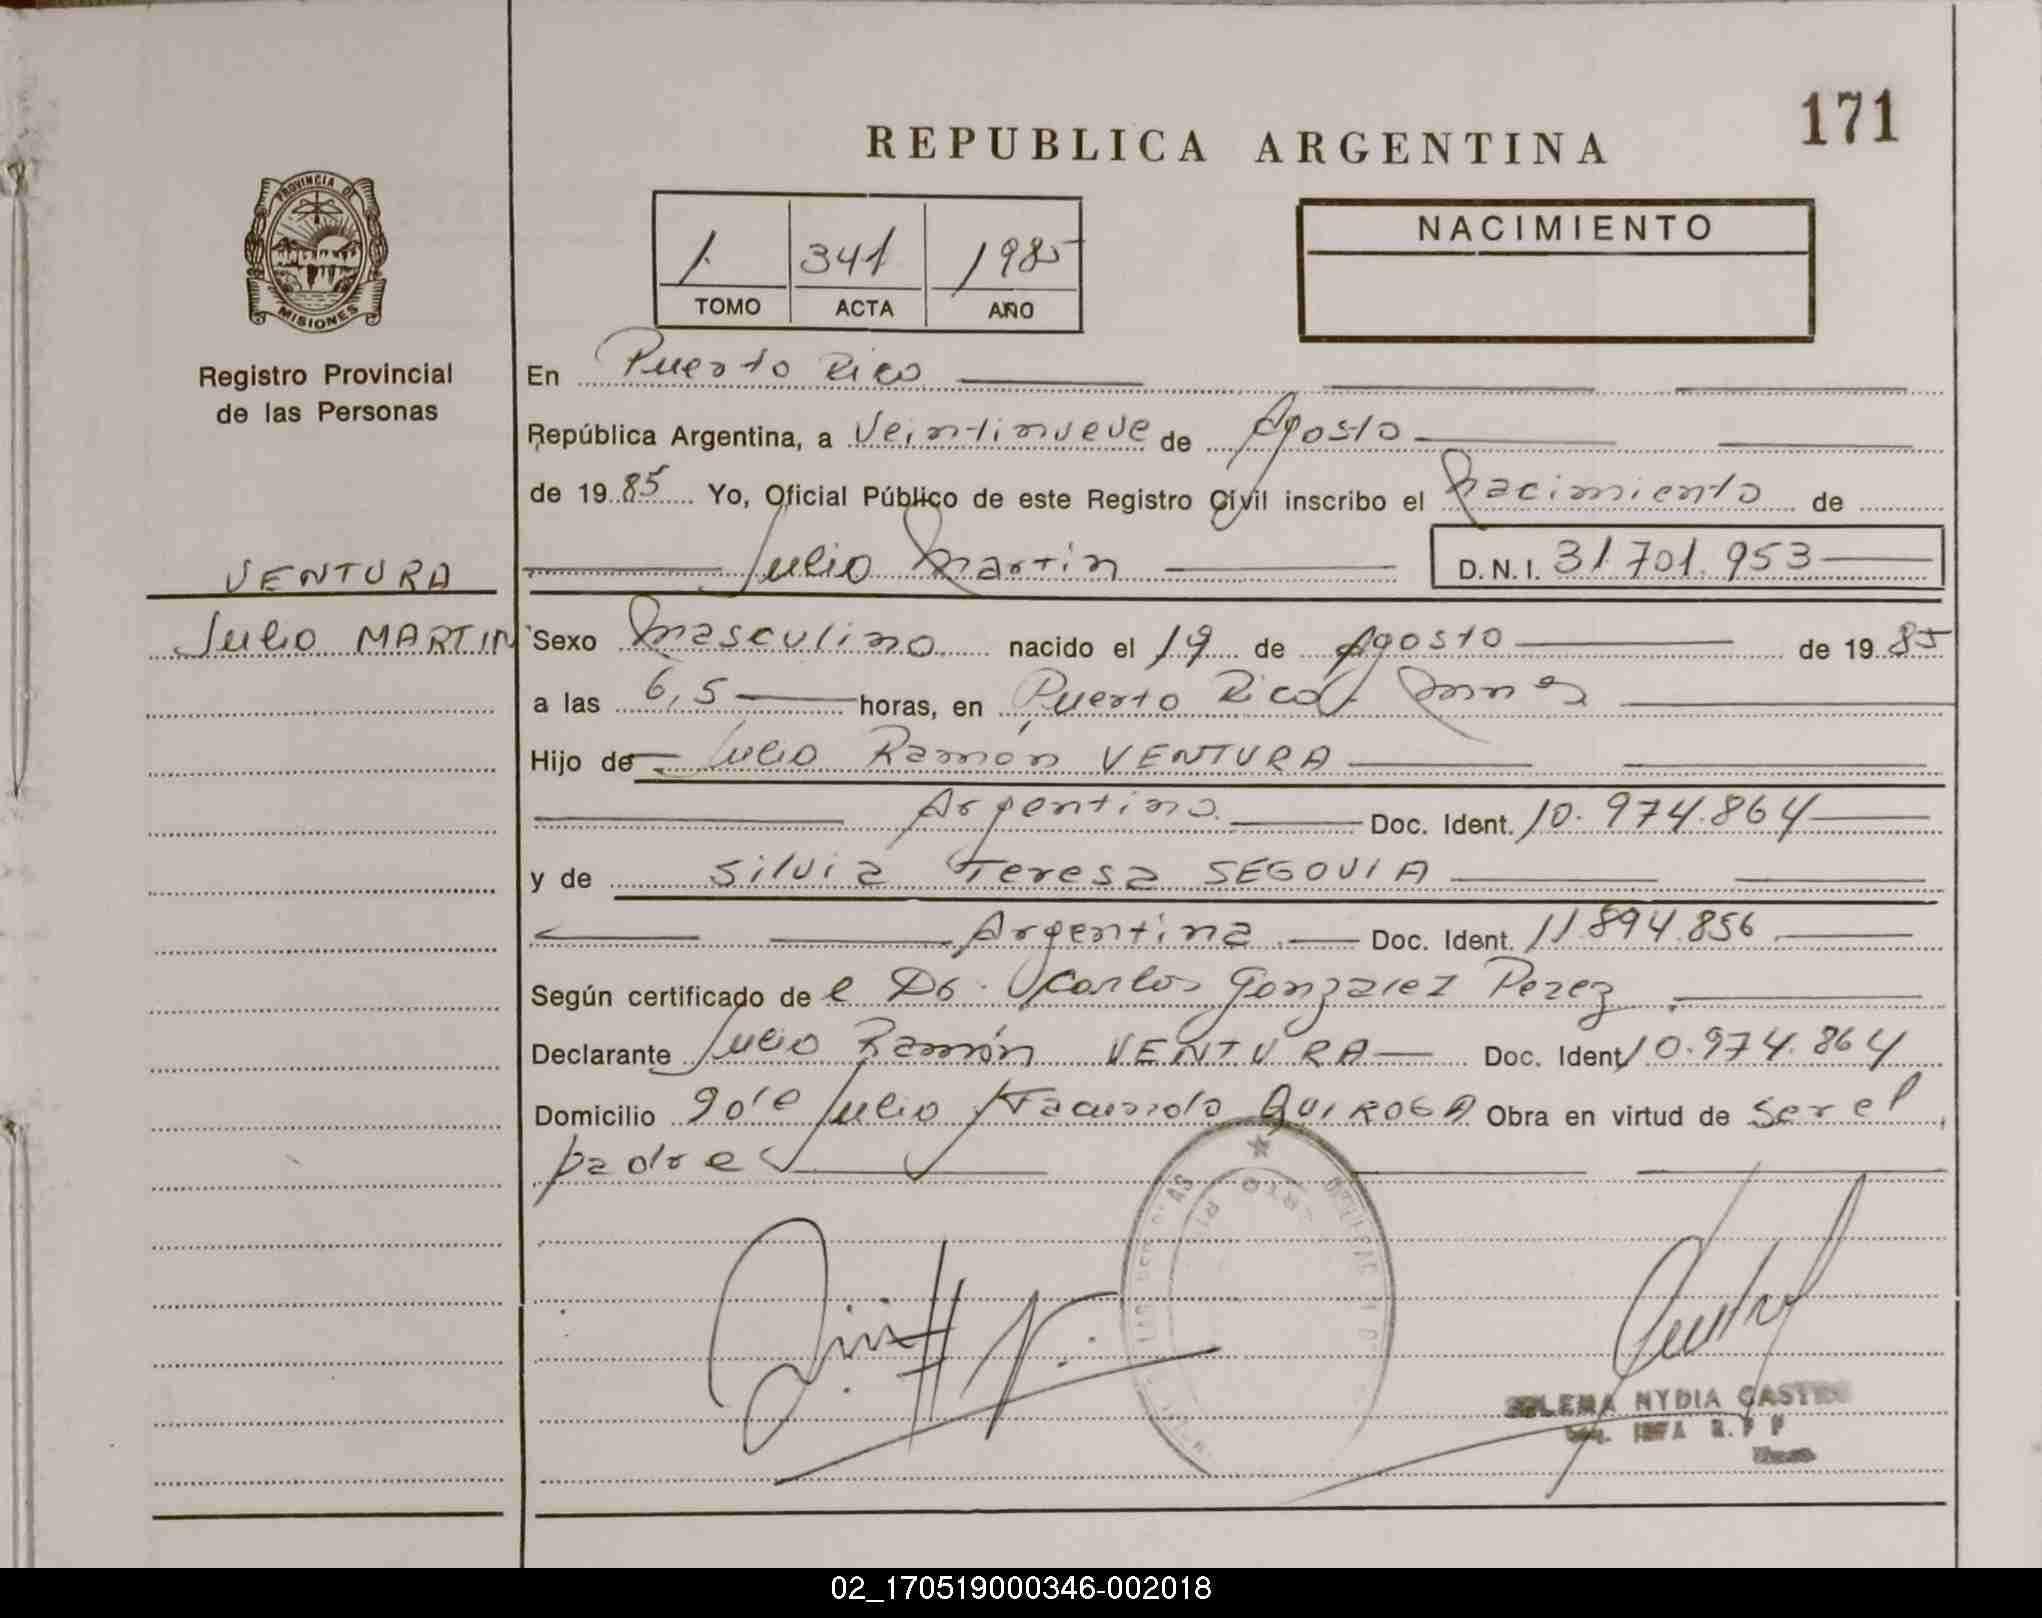 171
REPUBLICA ARGENTINA
PROVINCIA DE
MISIONES
Registro Provincial
de las Personas
1. 341 1985
TOMO ACTA AÑO
NACIMIENTO
En Puerto Rico
República Argentina, a Veintinueve de Agosto
de 1985 Yo, Oficial Público de este Registro Civil inscribo el Nacimiento de
Julio Martín D.N.I. 31.701.953
VENTURA
Julio MARTIN
Sexo Masculino nacido el 19 de Agosto de 1985
a las 6,5 horas, en Puerto Rico
Hijo de Julio Ramón VENTURA
Argentino Doc. Ident. 10.974.864
y de Silvia Teresa SEGOVIA
Argentina Doc. Ident. 11.894.856
Según certificado de el Dr. Carlos Gonzalez Perez
Declarante Julio Ramón VENTURA Doc. Ident 10.974.864
Domicilio 9 de Julio y Facundo QUIROGA Obra en virtud de ser el
padre
NYDIA CASTRO
02_170519000346-002018